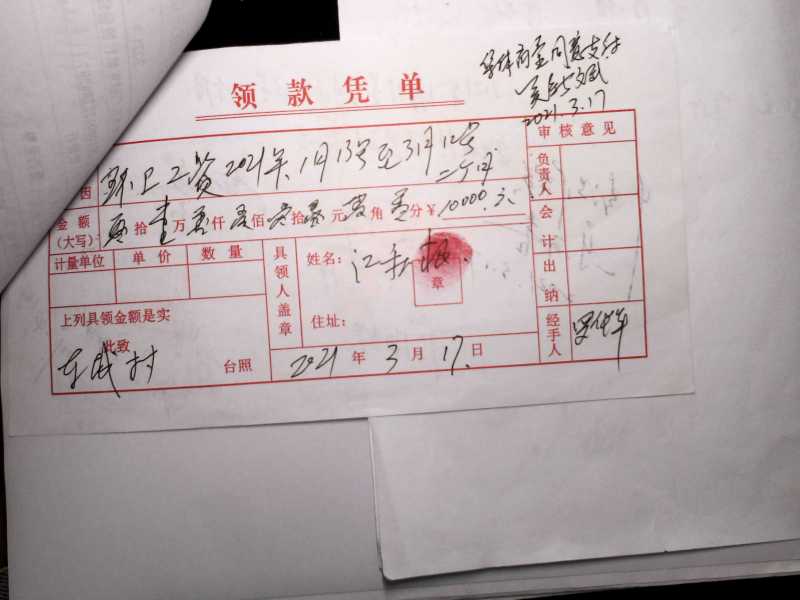 集体商量同意支付
2021.3.17
领款凭单
审核意见
因 环卫工资2021年1月13号至3月12号
二个月
金额（大写） 零拾壹万零仟零佰零拾零元零角零分 ¥10000.元
计量单位 单价 数量
具领人盖章
姓名：江 梅
章
住址：
上列具领金额是实
此致
东 村 台照
2021年3月17日
负责人
会计
出纳
经手人